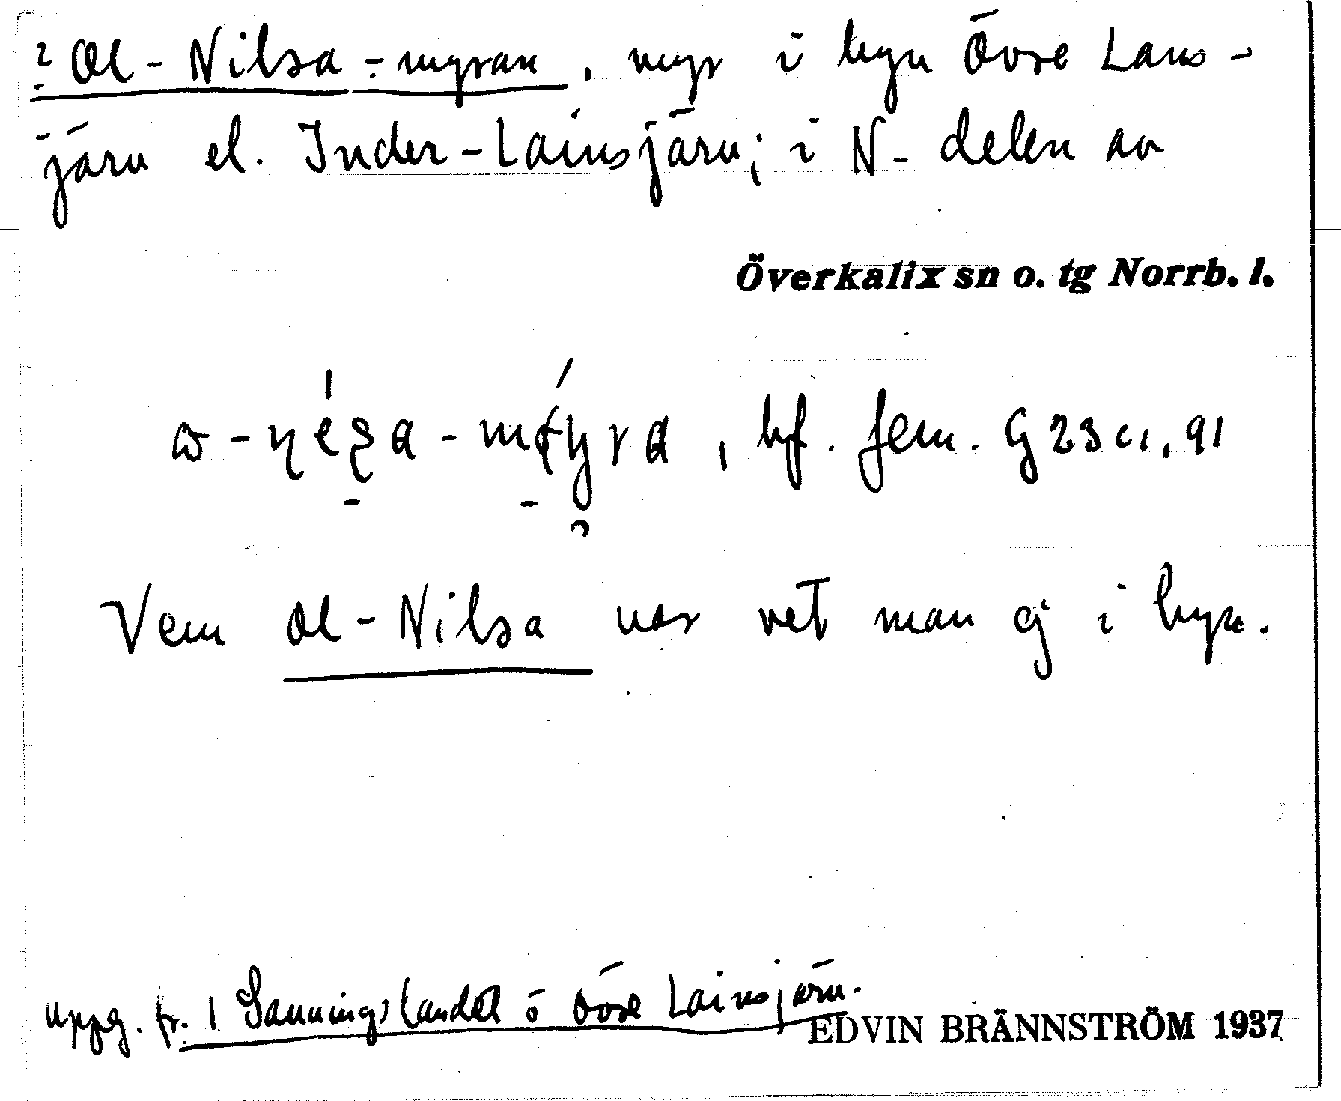 ? Ol-Nilsa-myran, myr i byn Övre Lans-
järv el. Inder-Lainsjärv; i N-delen av
Överkalix sn o. tg Norrb. l.
bf. fem. G 23 c1, 91
Vem Ol-Nilsa var vet man ej i byn.
uppg. fr. 1 Sanningslandet o Övre Lainsjärv.
EDVIN BRÄNNSTRÖM 1937